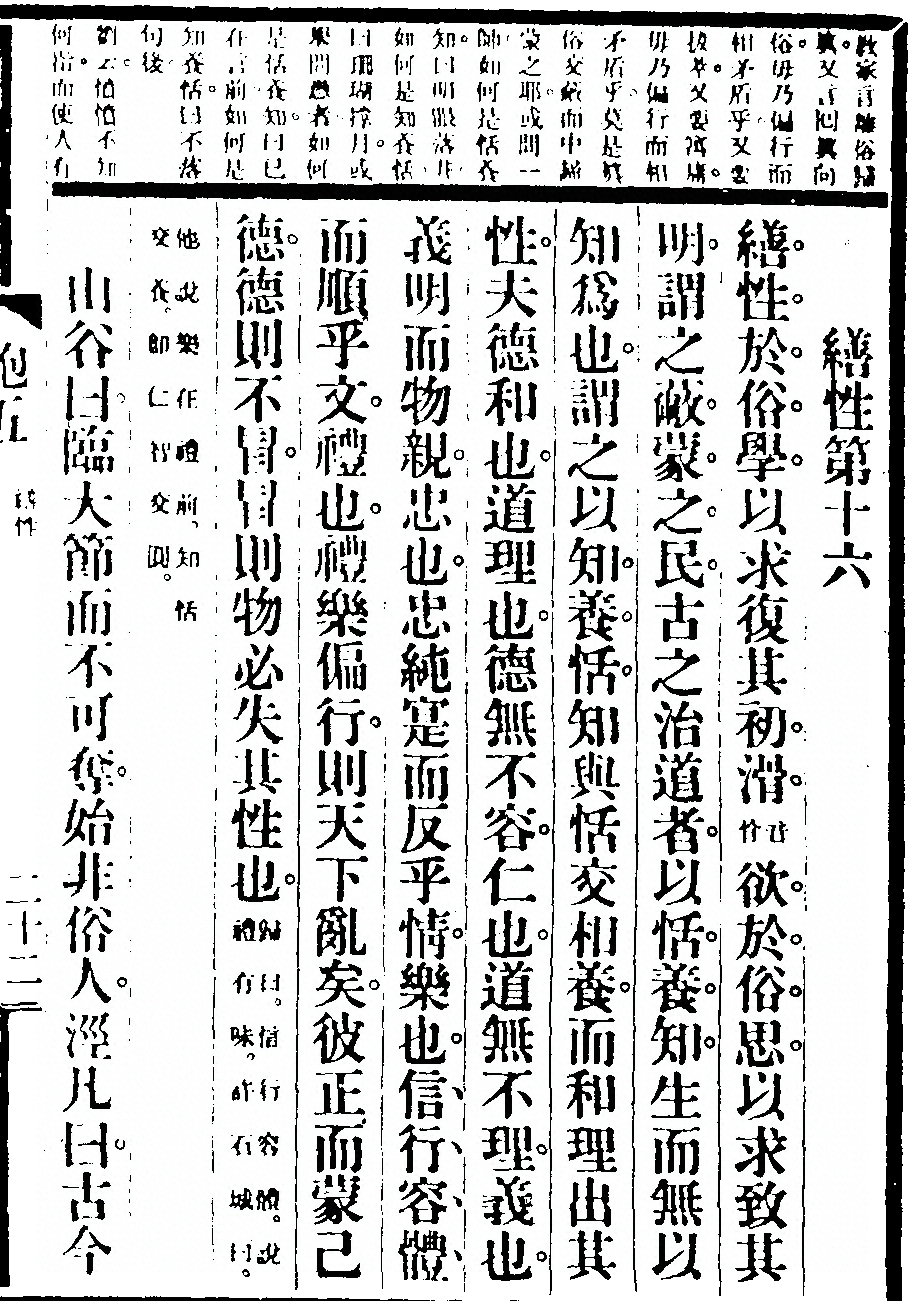 教家言離俗歸
真又言回真向
俗毋乃偏行而
相矛盾乎又要
拔萃又要寓庸。
毋乃偏行而相
矛盾乎莫是真
俗交蔽而中歸
蒙之耶或問一
師如何是恬養
知曰明眼落井
如何是知養恬
曰珊瑚撐月或
問愚者如何
是恬養知曰已
在言前如何是
知養恬曰不落
句後
劉云憤憤不知
何指而使人有
繕性第十六
繕性於俗學以求復其初滑音骨欲於俗思以求致其
明謂之蔽蒙之民古之治道者以恬養知生而無以
知爲也謂之以知養恬知與恬交相養而和理出其
性夫德和也道理也德無不容仁也道無不理義也
義明而物親忠也忠純寔而反乎情樂也信行容體
而順乎文禮也禮樂偏行則天下亂矣彼正而蒙己
德德則不冒冒則物必失其性也歸曰。信行容體。說禮有味。許石城曰。
他說樂在禮前、知恬
交養。即仁智交圓。
山谷曰臨大節而不可奪始非俗人涇凡曰古今
炮五
繕性
二十二